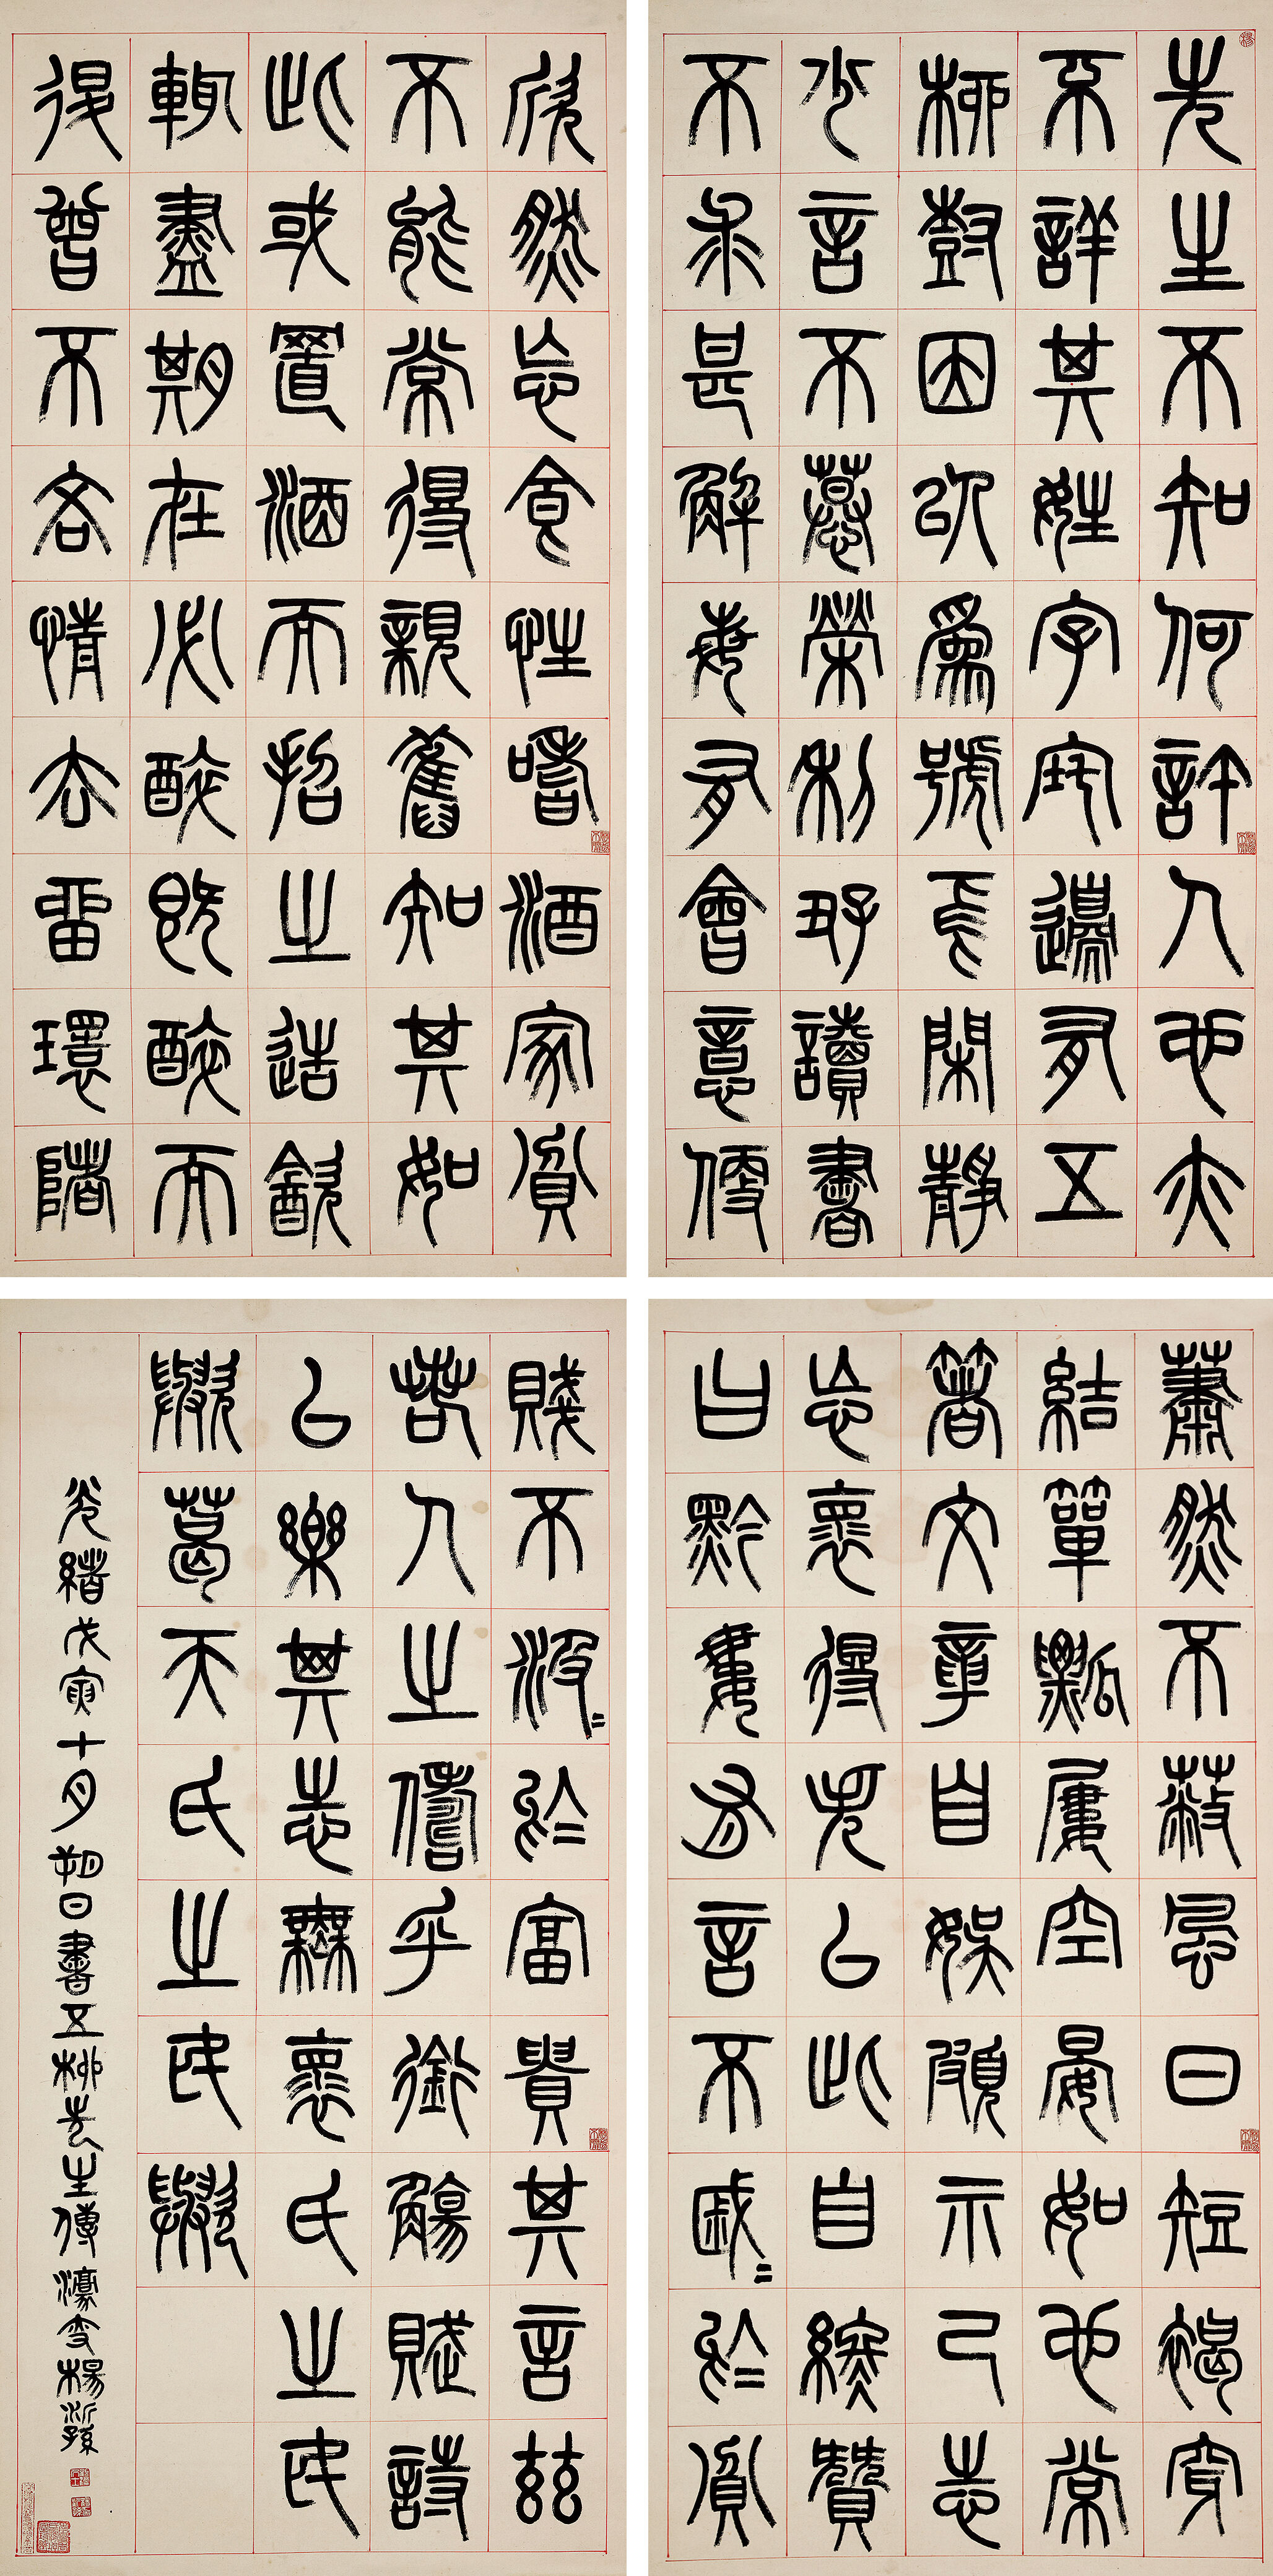 先生不知何許人也亦
不詳其姓字宅邊有五
柳樹因以爲號焉閑靜
少言不慕榮利好讀書
不求甚解每有會意便
欣然忘食性嗜酒家貧
不能常得親舊知其如
此或置酒而招之造飲
輒盡期在必醉既醉而
退曾不吝情去留環堵
蕭然不蔽風日短褐穿
結簞瓢屢空晏如也常
箸文章自娛頗示己志
忘懷得失以此自終贊
曰黔婁有言不戚〻於貧
賤不汲〻於富貴其言茲
若人之儔乎銜觴賦詩
以樂其志無懷氏之民
歟葛天氏之民歟
光緒戊寅十月朔日書五柳先生傳濠叟楊沂孫